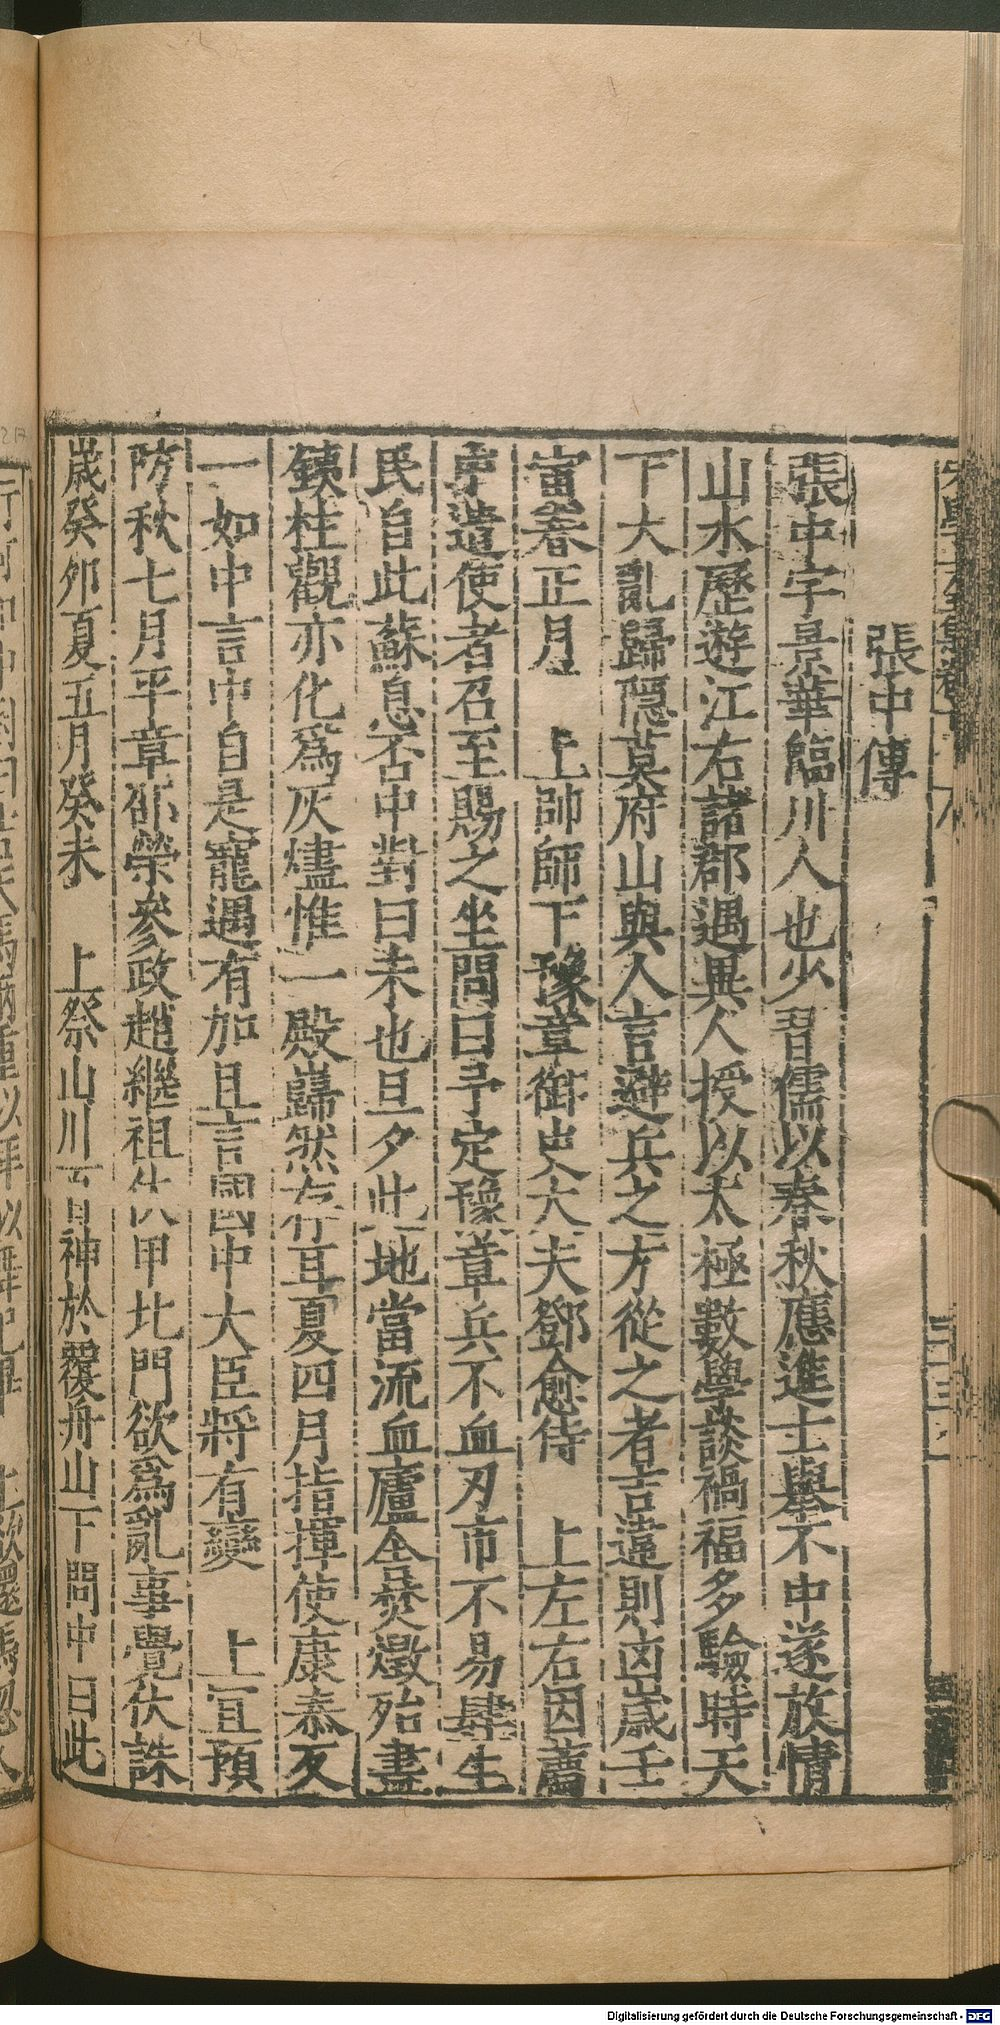 張中傳
張中字景華臨川人也少習儒以春秋應進士舉不中遂放情
山水歷遊江右諸郡遇異人授以太極數學談禍福多驗時天
下大亂歸隱莫府山與人言避兵之方從之者吉違則凶歲壬
寅春正月 上帥師下豫章御史大夫鄧愈侍 上左右因薦
中遣使者召至賜之坐問曰予定豫章兵不血刃市不易肆生
民自此蘇息否中對曰未也旦夕此地當流血廬舍焚燬殆盡
鐵柱觀亦化爲灰燼惟一殿巋然存耳夏四月指揮使康泰反
一如中言中自是寵遇有加且言國中大臣將有變 上宜預
防秋七月平章邵榮參政趙繼祖伏甲北門欲爲亂事覺伏誅
歲癸卯夏五月癸未 上祭山川百神於覆舟山下問中曰此
Digitalisierung gefördert durch die Deutsche Forschungsgemeinschaft - DFG